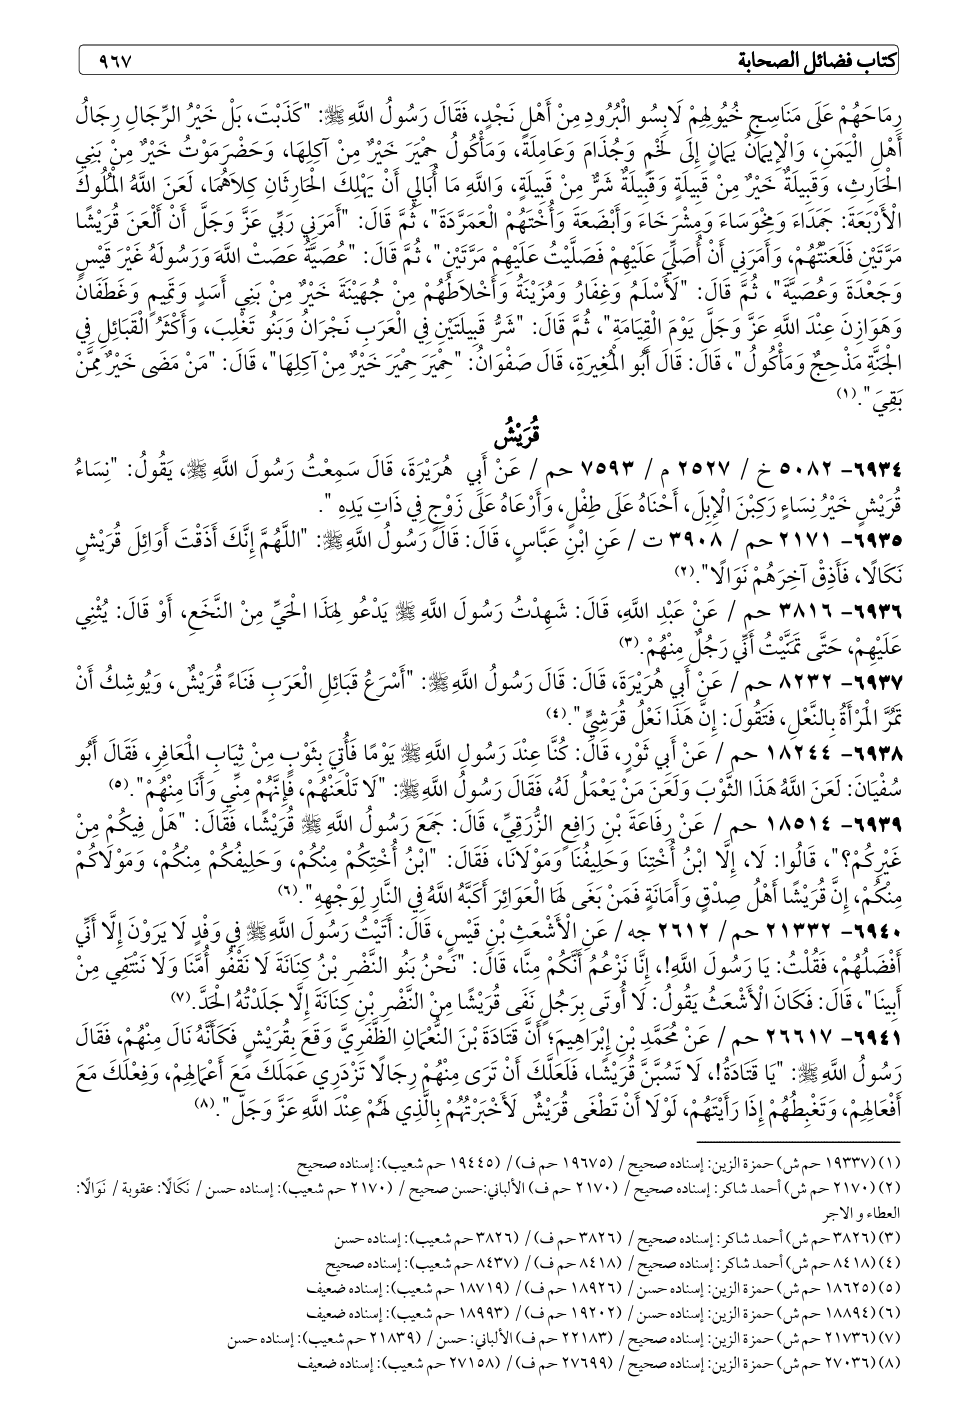 كتاب فضائل الصحابة ٩٦٧
رِمَاحَهُمْ عَلَى مَنَاسِجِ خُيُولِهِمْ لَابِسُو الْبُرُودِ مِنْ أَهْلِ نَجْدٍ، فَقَالَ رَسُولُ اللَّهِ ﷺ: "كَذَبْتَ، بَلْ خَيْرُ الرِّجَالِ رِجَالُ
أَهْلِ الْيَمَنِ، وَالْإِيمَانُ يَمَانٍ إِلَى لَخْمٍ وَجُذَامَ وَعَامِلَةَ، وَمَأْكُولُ حِمْيَرَ خَيْرٌ مِنْ آكِلِهَا، وَحَضْرَمَوْتُ خَيْرٌ مِنْ بَنِي
الْحَارِثِ، وَقَبِيلَةٌ خَيْرٌ مِنْ قَبِيلَةٍ وَقَبِيلَةٌ شَرٌّ مِنْ قَبِيلَةٍ، وَاللَّهِ مَا أُبَالِي أَنْ يَهْلِكَ الْحَارِثَانِ كِلَاهُمَا، لَعَنَ اللَّهُ الْمُلُوكَ
الْأَرْبَعَةَ: جَمَدَاءَ وَمِخْوَسَاءَ وَمِشْرَخَاءَ وَأَبْضَعَةَ وَأُخْتَهُمْ الْعَمَرَّدَةَ"، ثُمَّ قَالَ: "أَمَرَنِي رَبِّي عَزَّ وَجَلَّ أَنْ أَلْعَنَ قُرَيْشًا
مَرَّتَيْنِ فَلَعَنْتُهُمْ، وَأَمَرَنِي أَنْ أُصَلِّيَ عَلَيْهِمْ فَصَلَّيْتُ عَلَيْهِمْ مَرَّتَيْنِ"، ثُمَّ قَالَ: "عُصَيَّةُ عَصَتْ اللَّهَ وَرَسُولَهُ غَيْرَ قَيْسٍ
وَجَعْدَةَ وَعُصَيَّةَ"، ثُمَّ قَالَ: "لَأَسْلَمُ وَغِفَارُ وَمُزَيْنَةُ وَأَخْلَاطُهُمْ مِنْ جُهَيْنَةَ خَيْرٌ مِنْ بَنِي أَسَدٍ وَتَمِيمٍ وَغَطَفَانَ
وَهَوَازِنَ عِنْدَ اللَّهِ عَزَّ وَجَلَّ يَوْمَ الْقِيَامَةِ"، ثُمَّ قَالَ: "شَرُّ قَبِيلَتَيْنِ فِي الْعَرَبِ نَجْرَانُ وَبَنُو تَغْلِبَ، وَأَكْثَرُ الْقَبَائِلِ فِي
الْجَنَّةِ مَذْحِجٌ وَمَأْكُولُ"، قَالَ: قَالَ أَبُو الْمُغِيرَةِ، قَالَ صَفْوَانُ: "حِمْيَرَ حِمْيَرَ خَيْرٌ مِنْ آكِلِهَا"، قَالَ: "مَنْ مَضَى خَيْرٌ مِمَّنْ
بَقِيَ".(١)
قُرَيْشُ
٦٩٣٤- ٥٠٨٢ خ / ٢٥٢٧ م / ٧٥٩٣ حم / عَنْ أَبِي هُرَيْرَةَ، قَالَ سَمِعْتُ رَسُولَ اللَّهِ ﷺ، يَقُولُ: "نِسَاءُ
قُرَيْشٍ خَيْرُ نِسَاءٍ رَكِبْنَ الْإِبِلَ، أَحْنَاهُ عَلَى طِفْلٍ، وَأَرْعَاهُ عَلَى زَوْجٍ فِي ذَاتِ يَدِهِ ".
٦٩٣٥- ٢١٧١ حم / ٣٩٠٨ ت / عَنِ ابْنِ عَبَّاسٍ، قَالَ: قَالَ رَسُولُ اللَّهِ ﷺ: "اللَّهُمَّ إِنَّكَ أَذَقْتَ أَوَائِلَ قُرَيْشٍ
نَكَالًا، فَأَذِقْ آخِرَهُمْ نَوَالًا".(٢)
٦٩٣٦- ٣٨١٦ حم / عَنْ عَبْدِ اللَّهِ، قَالَ: شَهِدْتُ رَسُولَ اللَّهِ ﷺ يَدْعُو لِهَذَا الْحَيِّ مِنْ النَّخَعِ، أَوْ قَالَ: يُثْنِي
عَلَيْهِمْ، حَتَّى تَمَنَّيْتُ أَنِّي رَجُلٌ مِنْهُمْ.(٣)
٦٩٣٧- ٨٢٣٢ حم / عَنْ أَبِي هُرَيْرَةَ، قَالَ: قَالَ رَسُولُ اللَّهِ ﷺ: "أَسْرَعُ قَبَائِلِ الْعَرَبِ فَنَاءً قُرَيْشٌ، وَيُوشِكُ أَنْ
تَمُرَّ الْمَرْأَةُ بِالنَّعْلِ، فَتَقُولَ: إِنَّ هَذَا نَعْلُ قُرَشِيٍّ".(٤)
٦٩٣٨- ١٨٢٤٤ حم / عَنْ أَبِي ثَوْرٍ، قَالَ: كُنَّا عِنْدَ رَسُولِ اللَّهِ ﷺ يَوْمًا فَأُتِيَ بِثَوْبٍ مِنْ ثِيَابِ الْمَعَافِرِ، فَقَالَ أَبُو
سُفْيَانَ: لَعَنَ اللَّهُ هَذَا الثَّوْبَ وَلَعَنَ مَنْ يَعْمَلُ لَهُ، فَقَالَ رَسُولُ اللَّهِ ﷺ: "لَا تَلْعَنْهُمْ، فَإِنَّهُمْ مِنِّي وَأَنَا مِنْهُمْ".(٥)
٦٩٣٩- ١٨٥١٤ حم / عَنْ رِفَاعَةَ بْنِ رَافِعٍ الزُّرَقِيِّ، قَالَ: جَمَعَ رَسُولُ اللَّهِ ﷺ قُرَيْشًا، فَقَالَ: "هَلْ فِيكُمْ مِنْ
غَيْرِكُمْ؟"، قَالُوا: لَا، إِلَّا ابْنُ أُخْتِنَا وَحَلِيفُنَا وَمَوْلَانَا، فَقَالَ: "ابْنُ أُخْتِكُمْ مِنْكُمْ، وَحَلِيفُكُمْ مِنْكُمْ، وَمَوْلَاكُمْ
مِنْكُمْ، إِنَّ قُرَيْشًا أَهْلُ صِدْقٍ وَأَمَانَةٍ فَمَنْ بَغَى لَهَا الْعَوَائِرَ أَكَبَّهُ اللَّهُ فِي النَّارِ لِوَجْهِهِ".(٦)
٦٩٤٠- ٢١٣٣٢ حم / ٢٦١٢ جه / عَنِ الْأَشْعَثِ بْنِ قَيْسٍ، قَالَ: أَتَيْتُ رَسُولَ اللَّهِ ﷺ فِي وَفْدٍ لَا يَرَوْنَ إِلَّا أَنِّي
أَفْضَلُهُمْ، فَقُلْتُ: يَا رَسُولَ اللَّهِ!، إِنَّا نَزْعُمُ أَنَّكُمْ مِنَّا، قَالَ: "نَحْنُ بَنُو النَّضْرِ بْنُ كِنَانَةَ لَا نَقْفُو أُمَّنَا وَلَا نَنْتَفِي مِنْ
أَبِينَا"، قَالَ: فَكَانَ الْأَشْعَثُ يَقُولُ: لَا أُوتَى بِرَجُلٍ نَفَى قُرَيْشًا مِنْ النَّضْرِ بْنِ كِنَانَةَ إِلَّا جَلَدْتُهُ الْحَدَّ.(٧)
٦٩٤١- ٢٦٦١٧ حم / عَنْ مُحَمَّدِ بْنِ إِبْرَاهِيمَ؛ أَنَّ قَتَادَةَ بْنَ النُّعْمَانِ الظَّفَرِيَّ وَقَعَ بِقُرَيْشٍ فَكَأَنَّهُ نَالَ مِنْهُمْ، فَقَالَ
رَسُولُ اللَّهِ ﷺ: "يَا قَتَادَةُ!، لَا تَسُبَّنَّ قُرَيْشًا، فَلَعَلَّكَ أَنْ تَرَى مِنْهُمْ رِجَالًا تَزْدَرِي عَمَلَكَ مَعَ أَعْمَالِهِمْ، وَفِعْلَكَ مَعَ
أَفْعَالِهِمْ، وَتَغْبِطُهُمْ إِذَا رَأَيْتَهُمْ، لَوْلَا أَنْ تَطْغَى قُرَيْشٌ لَأَخْبَرْتُهُمْ بِالَّذِي لَهُمْ عِنْدَ اللَّهِ عَزَّ وَجَلَّ".(٨)
(١) (١٩٣٣٧ حم ش) حمزة الزين: إسناده صحيح / (١٩٦٧٥ حم ف) / (١٩٤٤٥ حم شعيب): إسناده صحيح
(٢) (٢١٧٠ حم ش) أحمد شاكر: إسناده صحيح / (٢١٧٠ حم ف) الألباني:حسن صحيح / (٢١٧٠ حم شعيب): إسناده حسن / نَكَالًا: عقوبة / نَوَالًا:
العطاء و الاجر
(٣) (٣٨٢٦ حم ش) أحمد شاكر: إسناده صحيح / (٣٨٢٦ حم ف) / (٣٨٢٦ حم شعيب): إسناده حسن
(٤) (٨٤١٨ حم ش) أحمد شاكر: إسناده صحيح / (٨٤١٨ حم ف) / (٨٤٣٧ حم شعيب): إسناده صحيح
(٥) (١٨٦٢٥ حم ش) حمزة الزين: إسناده حسن / (١٨٩٢٦ حم ف) / (١٨٧١٩ حم شعيب): إسناده ضعيف
(٦) (١٨٨٩٤ حم ش) حمزة الزين: إسناده حسن / (١٩٢٠٢ حم ف) / (١٨٩٩٣ حم شعيب): إسناده ضعيف
(٧) (٢١٧٣٦ حم ش) حمزة الزين: إسناده صحيح / (٢٢١٨٣ حم ف) الألباني: حسن / (٢١٨٣٩ حم شعيب): إسناده حسن
(٨) (٢٧٠٣٦ حم ش) حمزة الزين: إسناده صحيح / (٢٧٦٩٩ حم ف) / (٢٧١٥٨ حم شعيب): إسناده ضعيف